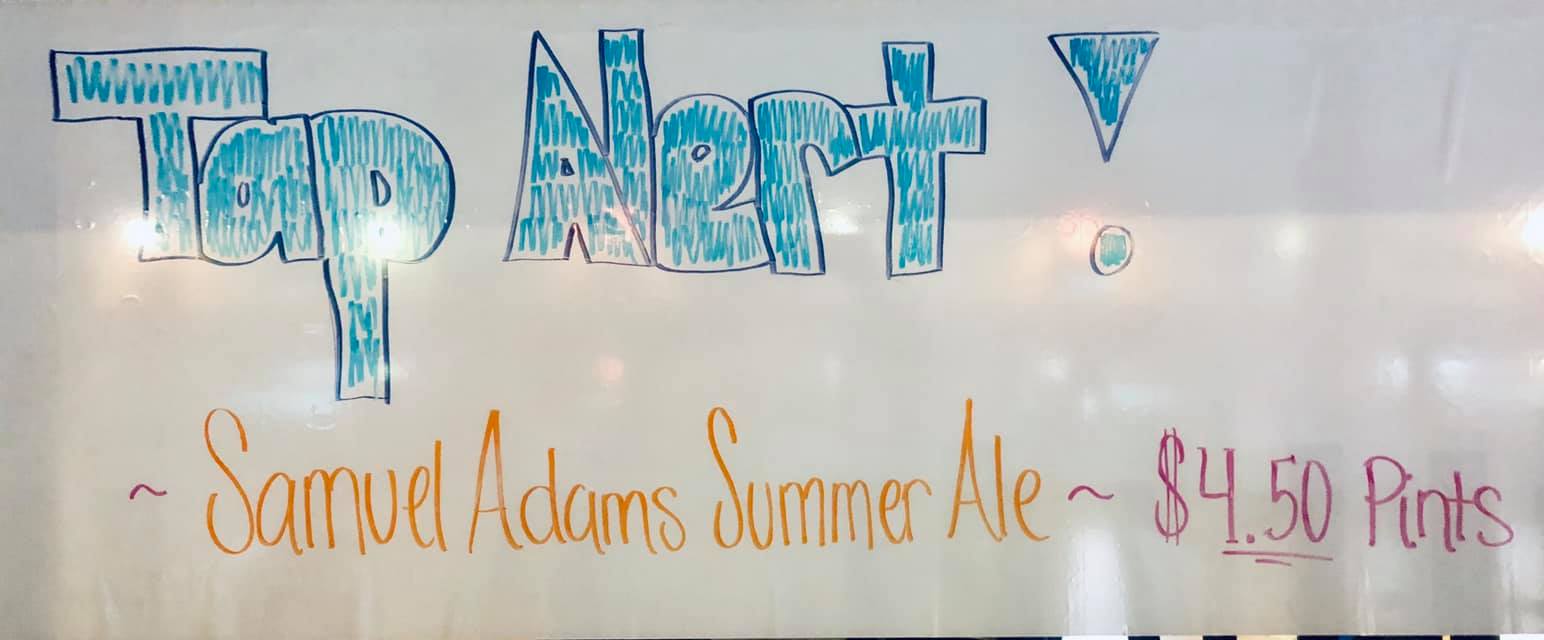 Tap Alert!
~ Samuel Adams Summer Ale ~ $4.50 Pints